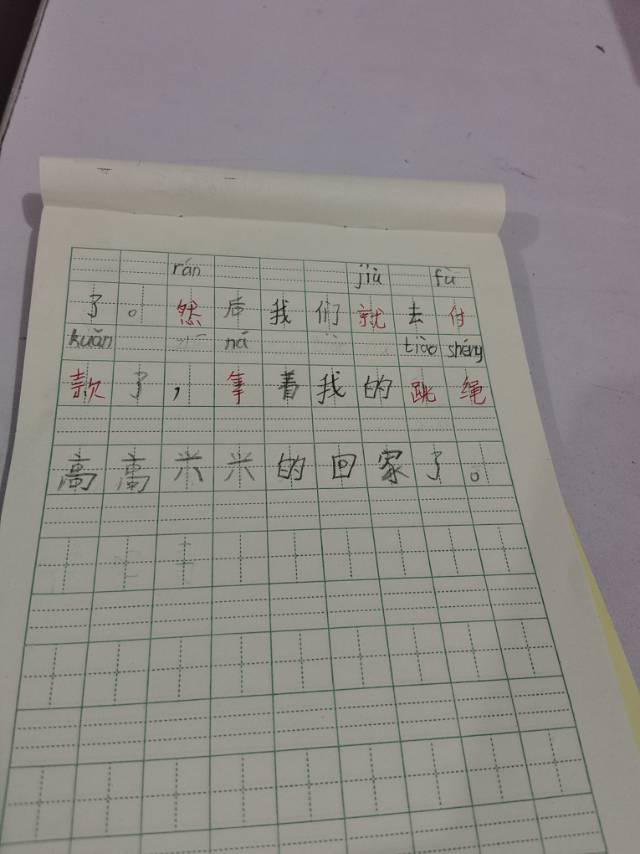 rán jiù fù
了。然后我们就去付
kuǎn ná tiào shéng
款了，拿着我的跳绳
高高兴兴的回家了。